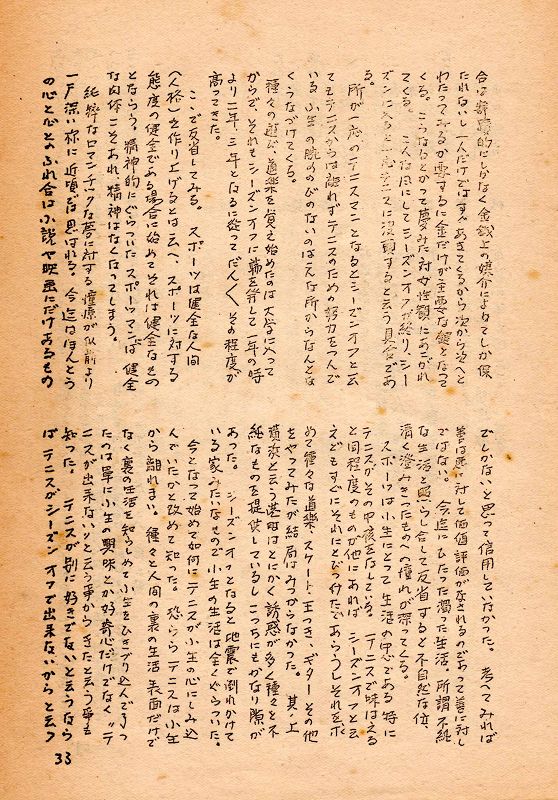 合は享楽的にしかなく金銭上の媒介によねてしか保
たれないし一人だけではすぐあきてくるから次から次へと
わたってみるが要するに金だけが主要な鍵となって
くる。こうなるとかって夢みた対女性観にあこがれ
てくる。こんな風にしてシーズンオフが終り、シー
ズンに入ると テニスに没頭すると云う具合であ
る。
所が一応のテニスマンとなるとシーズンオフと云
ってもテニスからは離れずテニスのための努力をつんで
いる。小生の腕ののびのないのはこんな所からんとな
くうなづけてくる。
種々の遊び、道楽を覚え始めたのは大学に入って
からで、それもシーズンオフに端を発して一年の時
より二年、三年となるに従ってだん〱その程度が
高ってきた。
こゝで反省してみる。スポーツは健全な人間
(人格)を作り上げるとは云へ、スポーツに対する
態度の健全である場合に始めてそれは健全なもの
とならう。精神的にぐらついたスポーツマンでは健全
な肉体こそあれ、精神はなくなってしまう。
純粋なロマンチックな夢に対する憧憬が以前より
一戸深い祢に近頃では思はれる。今迄はほんとう
の心と心とのふれ合は小説や映画にだけあるもの
でしかないと思って信用していなかった。考へてみれば
善は悪に対して価値評価がなされるのであって善に対し
ではない。今迄にひたった濁った生活、所謂不純
な生活と照らし合して反省すると不自然な位、
清く澄みきったものへの憧れが深ってくる。
スポーツは小生にとって生活の中心である。特に
テニスがその中核をなしている。テニスで味はえる
と同程度のものが他にあれば シーズンオフと云
えどもすぐにそれにとびつけたであらうしそれを求
めて種々な道楽、スケート、玉つき、ギター その他
をやってみたが結局はみつからなかった。其ノ上
横浜と云う基町はとにかく誘惑が多く種々と不
純なものを提供しているし こっちにもかなり隙が
あった。シーズンオフとなると地震で倒れかけて
いる家みたいなもので小生の生活は全くぐらついた。
今となって始めて如何にテニスが小生の心にしみ込
んでいたかと改めて知った。恐らくテニスは小生
から離れまい。種々と人間の裏の生活 表面だけで
なく裏の生活を知らしめて小生をひきづり込んでまっ
たのは単に小生の興味とか好奇心だけでなく〃テ
ニスが出来ない〃と云う事から きたと云う事も
知った。テニスが別に好きでないと云うなら
ば テニスがシーズンオフで出来ないからと云っ
33